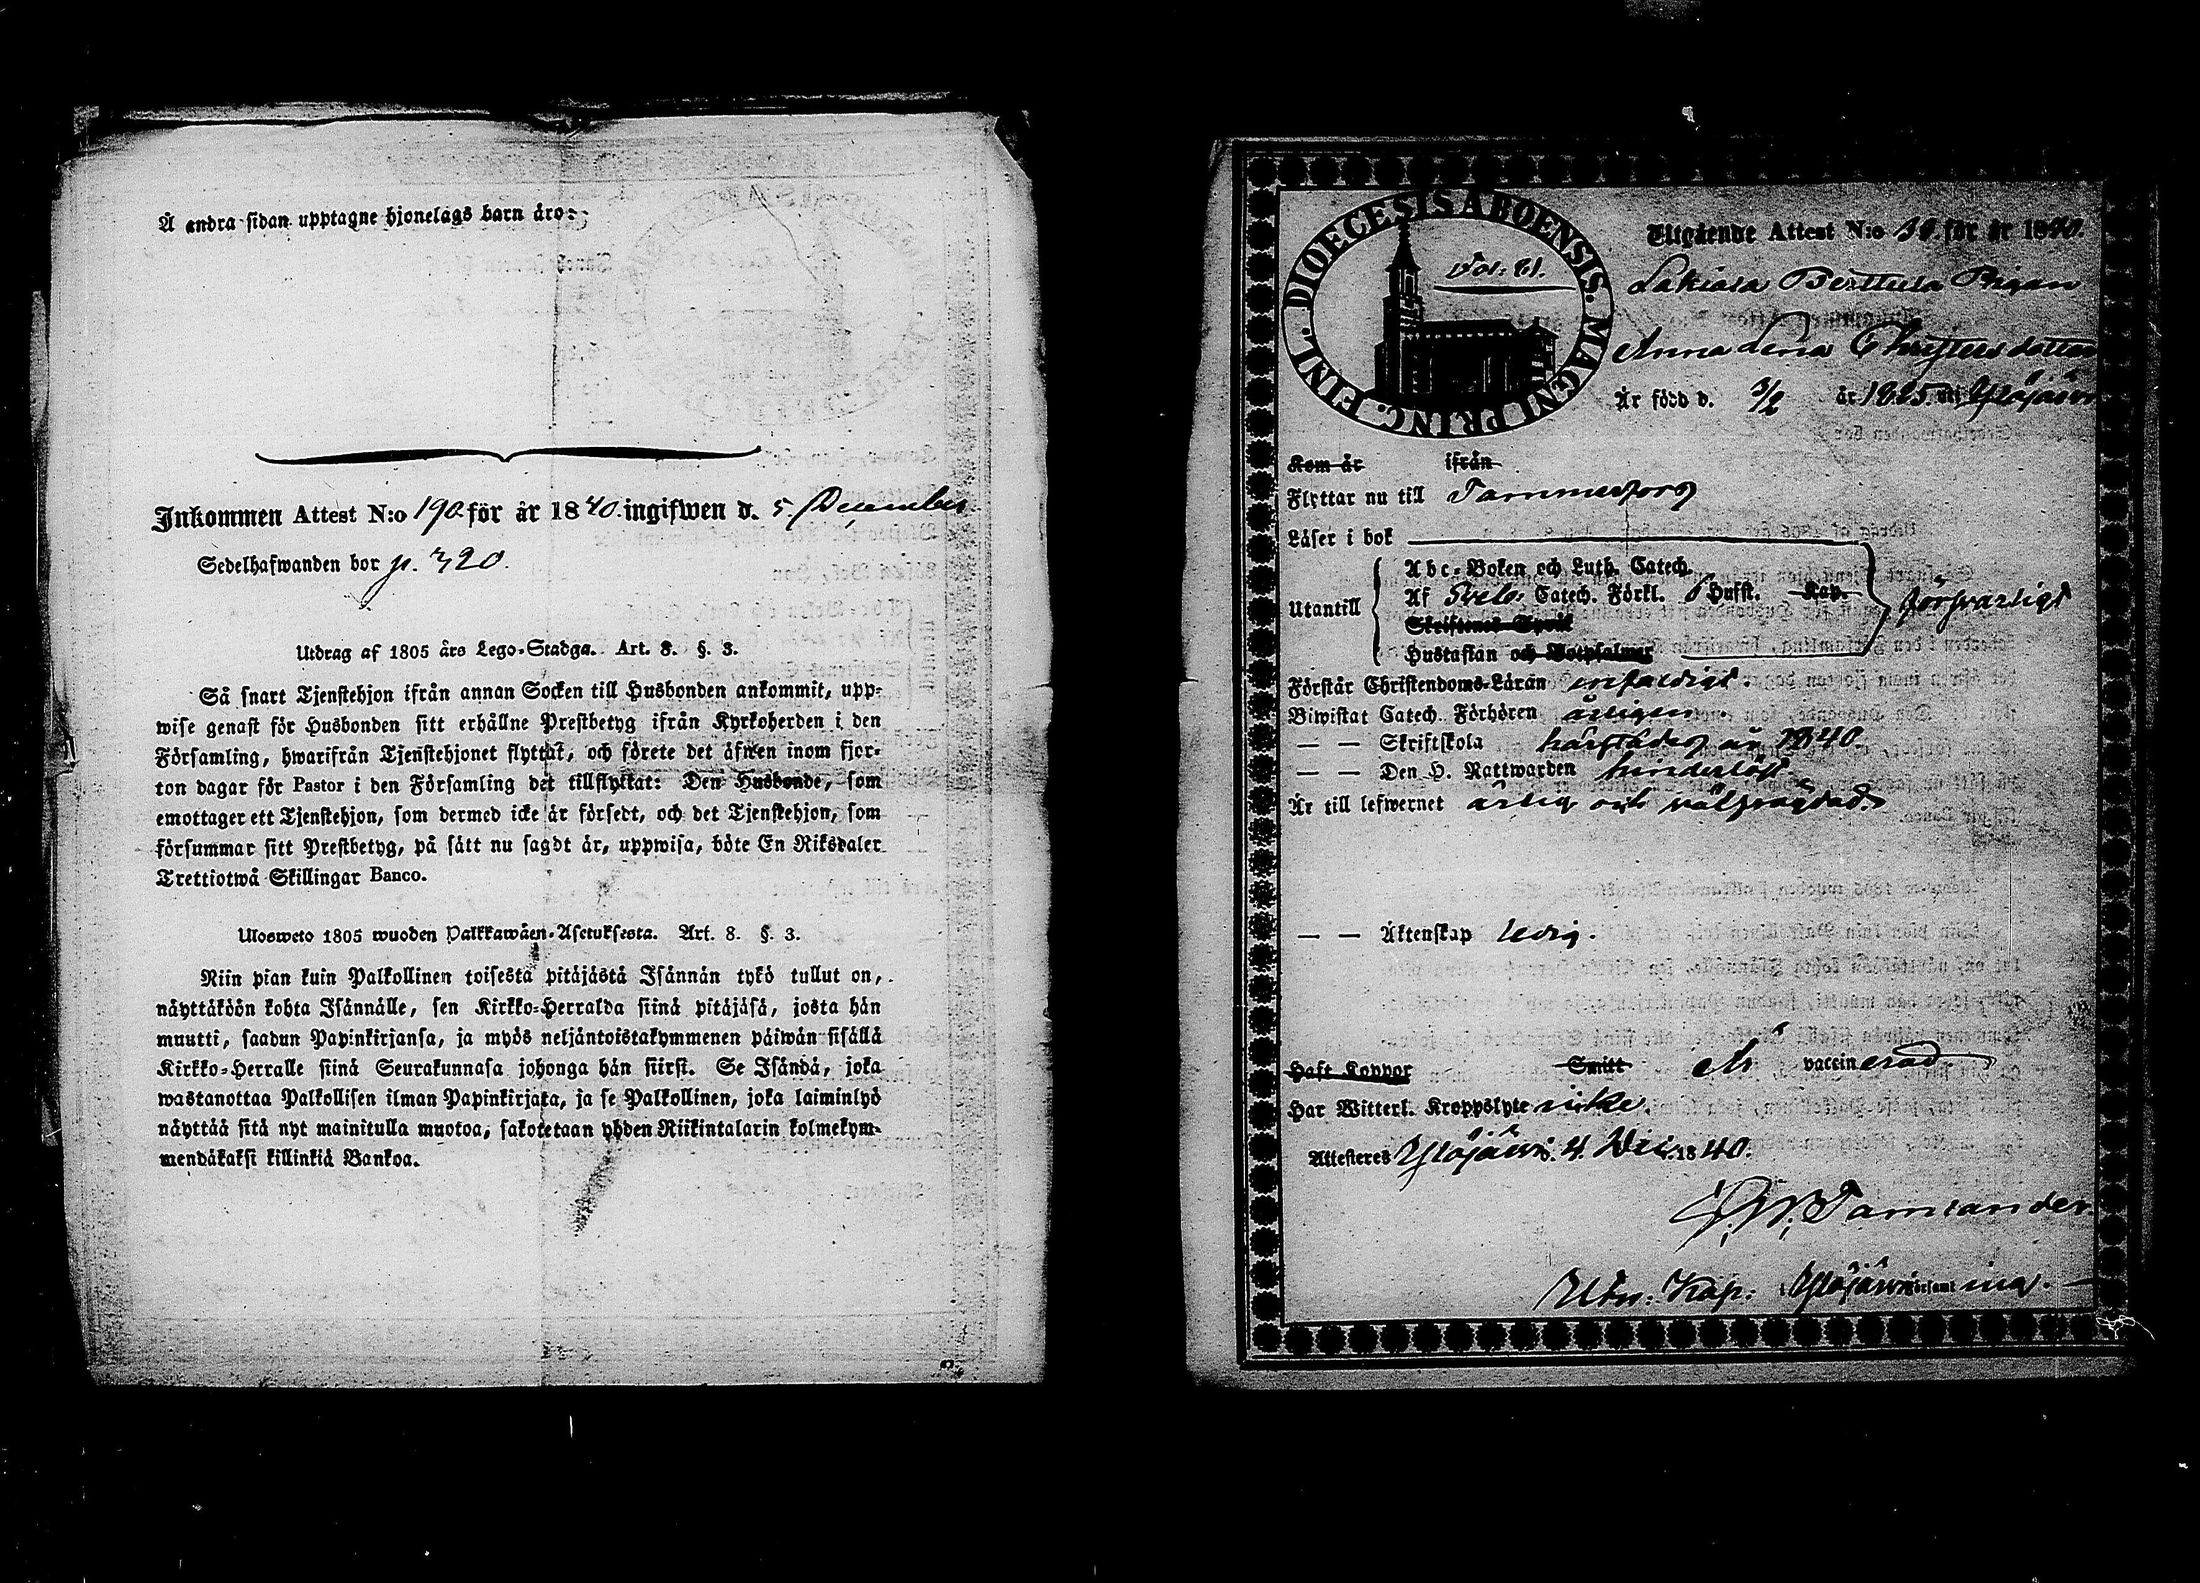 Å andra sidan upptagne hjonelags barn äro:
Inkommen Attest N:o 190 för år 1840. ingifwen d. 5. December.
Sedelhafwanden bor p. 320.
Utdrag af 1805 års Lego-Stadga. Art. 8. §. 3.
Så snart Tjenstehjon ifrån annan Socken till Husbonden ankommit, upp-
wise genast för Husbonden sitt erhållne Prestbetyg ifrån Kyrkoherden i den
Församling, hwarifrån Tjenstehjonet flyttat, och förete det äfwen inom fjor-
ton dagar för Pastor i den Församling det tillflyttat: Den Husbonde, som
emottager ett Tjenstehjon, som dermed icke är försedt, och det Tjenstehjon, som
försummar sitt Prestbetyg, på sätt nu sagdt är, uppwisa, böte En Riksdaler
Trettiotwå Skillingar Banco.
Ulosweto 1805 wuoden Palkkawäen-Asetuksesta. Art. 8. §. 3.
Niin pian kuin Palkollinen toisesta pitäjästä Isännän tykö tullut on,
näyttäköön kohta Isännälle, sen Kirkko-Herralda siinä pitäjäsä, josta hän
muutti, saadun Papinkirjansa, ja myös neljäntoistakymmenen päiwän sisällä
Kirkko-Herralle siinä Seurakunnasa johonga hän siirst. Se Isändä, joka
wastanottaa Palkollisen ilman Papinkirjata, ja se Palkollinen, joka laiminlyö
näyttää sitä nyt mainitulla muotoa, sakotetaan yhden Riikintalarin kolmekym-
mendäkaksi killinkiä Bankoa.
DIOECESIS ABOENSIS. MAGNI PRINC. FINL.
Fol: 81.
Utgående Attest N:o 39. för år 1840.
Lakiala Berttula Pigan
Anna Lena Christersdotter
Är född d. 3/2 år 1825. uti Ylöjärvi
Kom år ifrån
Flyttar nu till Tammerfors
Läser i bok
Utantill
Abc-Boken och Luth. Catech.
Af Sveb: Catech. Förkl. 6 Hufst. Kap.
Skriftenes Språk
Hustaflan och Botpsalmer
försvarligt
Förstår Christendoms-Läran enfaldigt.
Biwistat Catech. Förhören årligen
— — Skriftskola härstädes år 1840.
— — Den H. Nattwarden hinderlöst.
Är till lefwernet ärlig och välfrägdad.
— — Äktenskap ledig.
Haft Koppor Smitt Är vaccinerad
Har Witterl. Kroppslyte icke.
Attesteras Ylöjärvi d. 4. Dec. 1840.
Tamlander
Utn: Kap: i Ylöjärvi Församling.